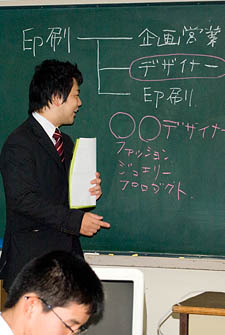 印刷 企画営業
デザイナー
印刷
〇〇デザイナー
ファッション
ジュエリー
プロダクト